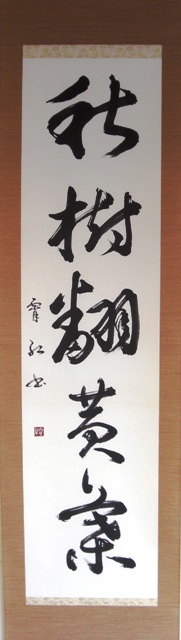 秋樹翻黄葉
霄紅書